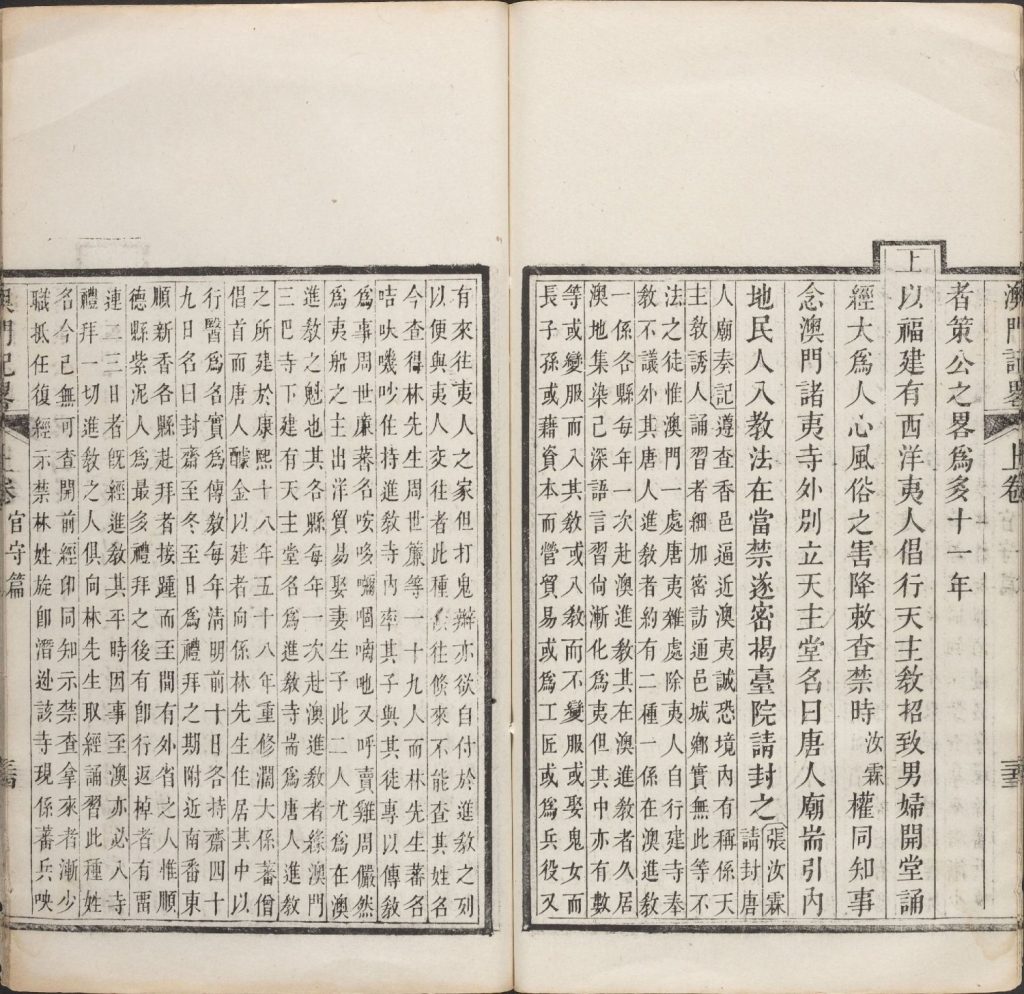 澳門記畧
上卷
者策公之畧爲多十一年
上
以福建有西洋夷人倡行天主敎招致男婦開堂誦
經大爲人心風俗之害降敕查禁時汝霖權同知事
念澳門諸夷寺外別立天主堂名曰唐人廟耑引內
地民人入敎法在當禁遂密揭臺院請封之張汝霖請封唐
人廟奏記遵查香邑逼近澳夷誠恐境內有稱係天
主敎誘人誦習者細加密訪通邑城鄉實無此等不
法之徒惟澳門一處唐夷雜處除夷人自行建寺奉
敎不議外其唐人進敎者約有二種一係在澳進敎
一係各縣每年一次赴澳進敎其在澳進敎者久居
澳地集染已深語言習尚漸化爲夷但其中亦有數
等或變服而入其敎或入敎而不變服或娶鬼女而
長子孫或藉資本而營貿易或爲工匠或爲兵役又
有來往夷人之家但打鬼辮亦欲自付於進敎之列
以便與夷人交往者此種往倏來不能查其姓名
今查得林先生周世廉等一十九人而林先生蕃名
咭吷嘰吵住持進敎寺內率其子與其徒專以傳敎
爲事周世廉蕃名咹哆囉啯喃吔又呼賣雞周儼然
爲夷船之主出洋貿易娶妻生子此二人尤爲在澳
進敎之魁也其各縣每年一次赴澳進敎者緣澳門
三巴寺下建有天主堂名爲進敎寺耑爲唐人進敎
之所建於康熙十八年五十八年重修濶大係蕃僧
倡首而唐人醵金以建者向係林先生住居其中以
行醫爲名實爲傳敎每年淸明前十日各持齋四十
九日名曰封齋至冬至日爲禮拜之期附近南番東
順新香各縣赴拜者接踵而至閒有外省之人惟順
德縣紫泥人爲最多禮拜之後有卽行返棹者有畱
連二三日者旣經進敎其平時因事至澳亦必入寺
禮拜一切進敎之人俱向林先生取經誦習此種姓
名今已無可查開前經卽同知示禁查拿來者漸少
職抵任復經示禁林姓旋卽潛逊該寺現係蕃兵映
澳門記畧
上卷
官守篇